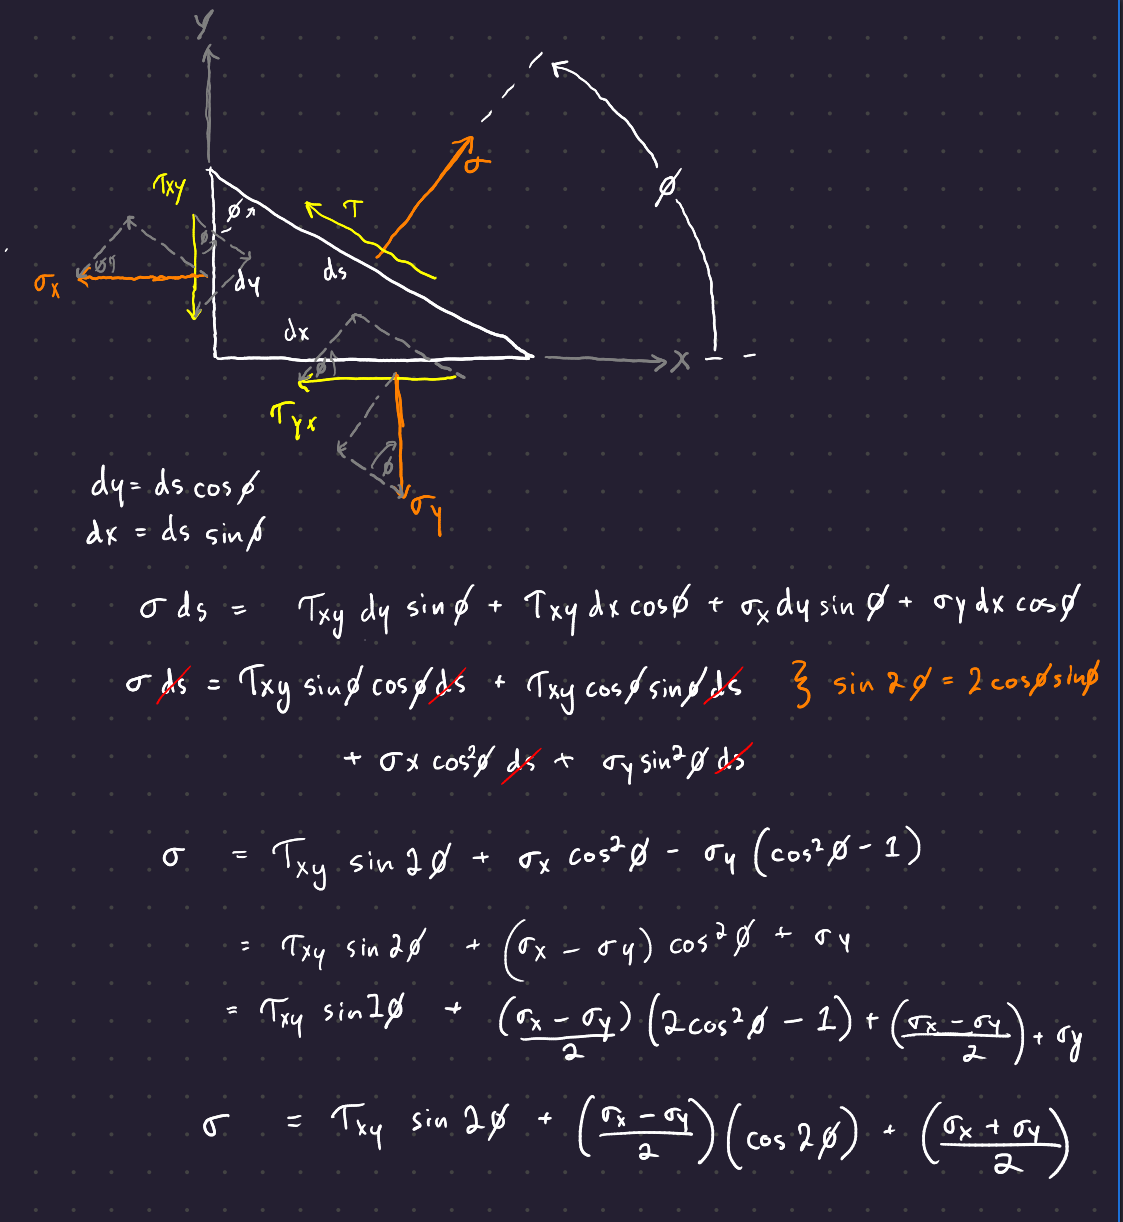 y
τxy
ϕ
τ
σ
ϕ
ϕ
ϕ
σx
dy
ds
dx
ϕ
x
τyx
ϕ
σy
dy = ds cos ϕ
dx = ds sin ϕ
σ ds = τxy dy sin ϕ + τxy dx cos ϕ + σx dy sin ϕ + σy dx cos ϕ
σ ds = τxy sin ϕ cos ϕ ds + τxy cos ϕ sin ϕ ds } sin 2ϕ = 2 cos ϕ sin ϕ
+ σx cos²ϕ ds + σy sin²ϕ ds
σ = τxy sin 2ϕ + σx cos²ϕ - σy (cos²ϕ - 1)
= τxy sin 2ϕ + (σx - σy) cos²ϕ + σy
= τxy sin 2ϕ + (σx - σy)/2 (2cos²ϕ - 1) + (σx - σy)/2 + σy
σ = τxy sin 2ϕ + (σx - σy)/2 (cos 2ϕ) + (σx + σy)/2